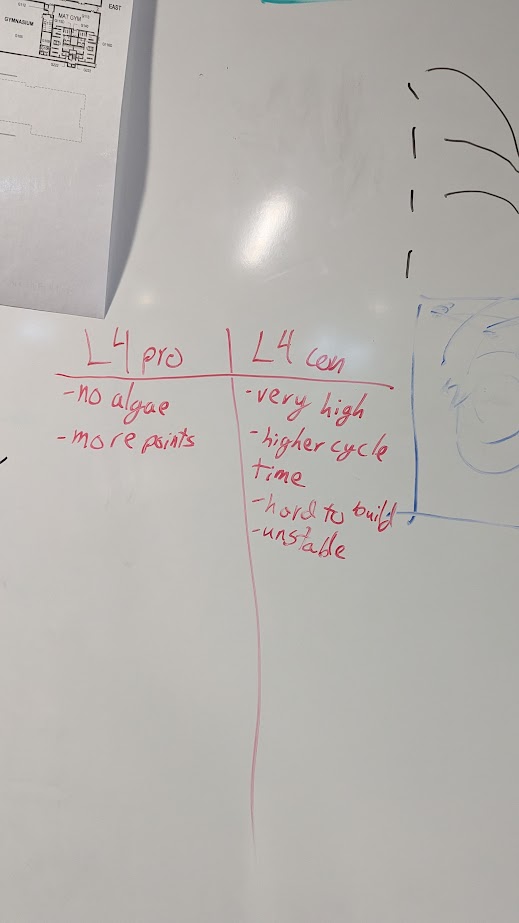 EAST
MAT GYM
GYMNASIUM
L4 pro
L4 con
-no algae
-more points
-very high
-higher cycle
time
-hard to build
-unstable